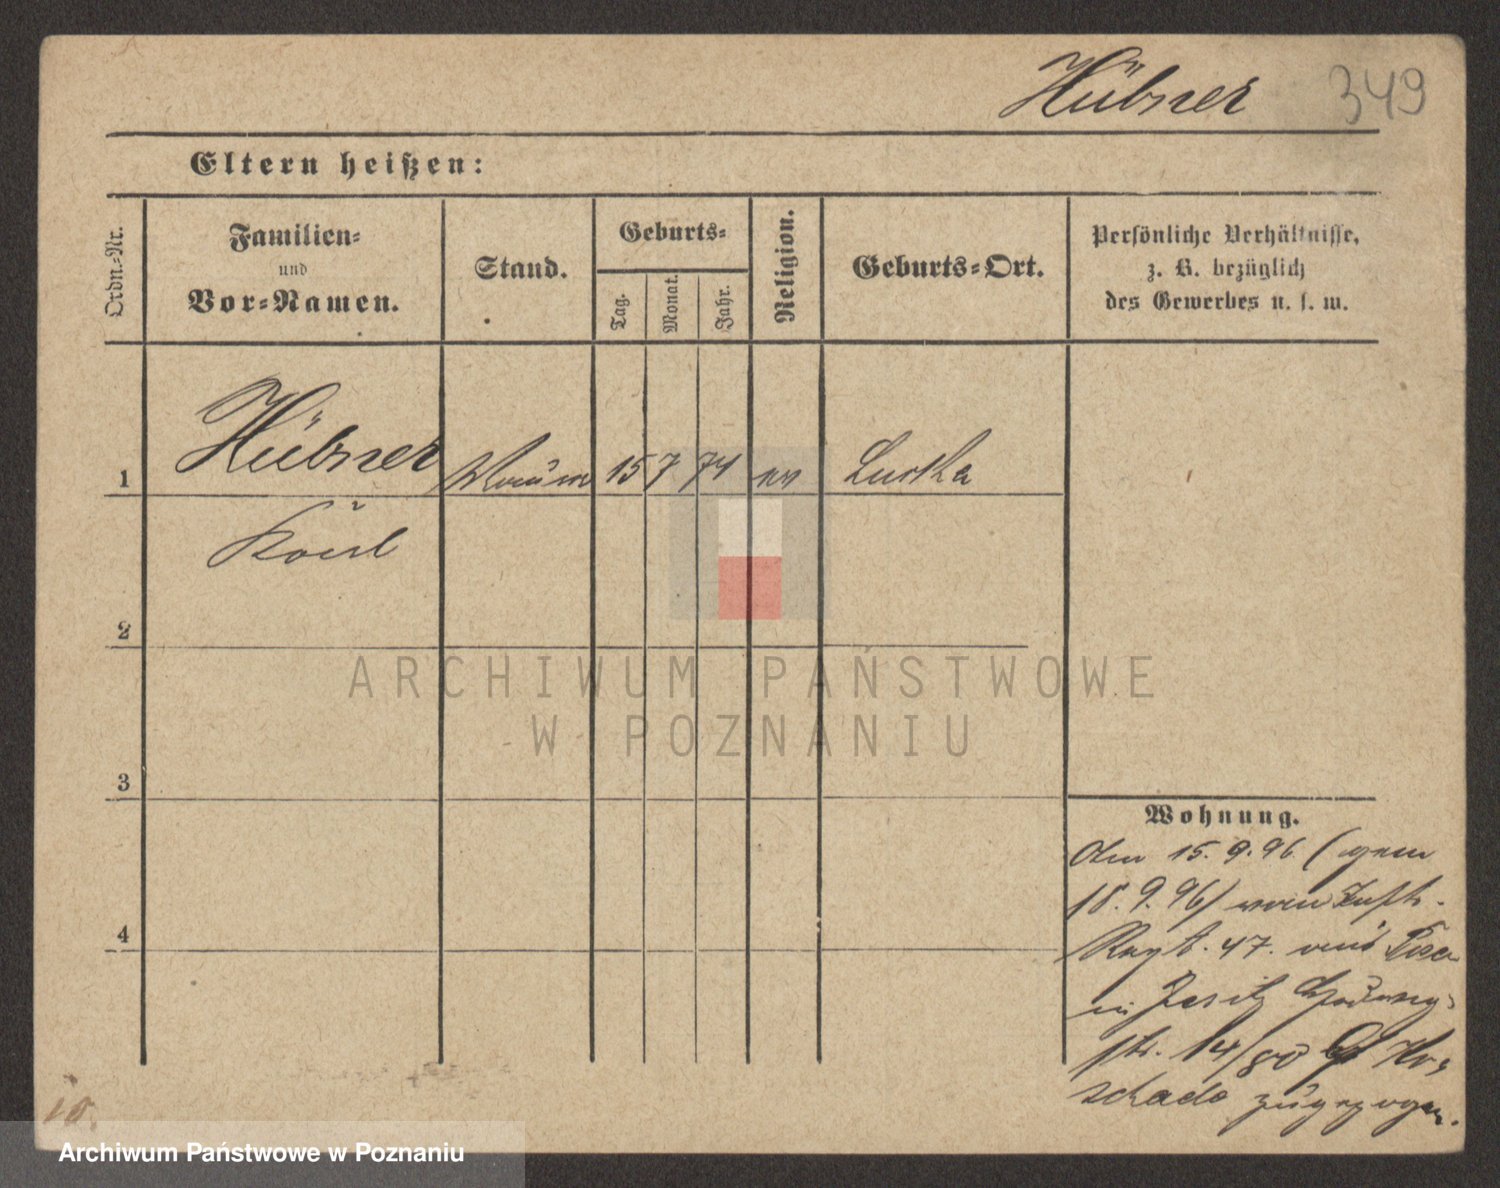 Hübner 349
Eltern heißen:
Ordn.-Nr.
Familien-
und
Vor-Namen.
Stand.
Geburts-
Tag.
Monat.
Jahr.
Religion.
Geburts-Ort.
Persönliche Verhältnisse,
z. B. bezüglich
des Gewerbes u. s. w.
1 Hübner 15 7 74 ev
2
3
4
Wohnung.
Am 15. 9. 96 (gem
18. 9. 96) vom Inftr.
Regt. 47. aus Posen
in Jersitz
str. 14/80
zugezogen.
10.
ARCHIWUM PAŃSTWOWE
W POZNANIU
Archiwum Państwowe w Poznaniu